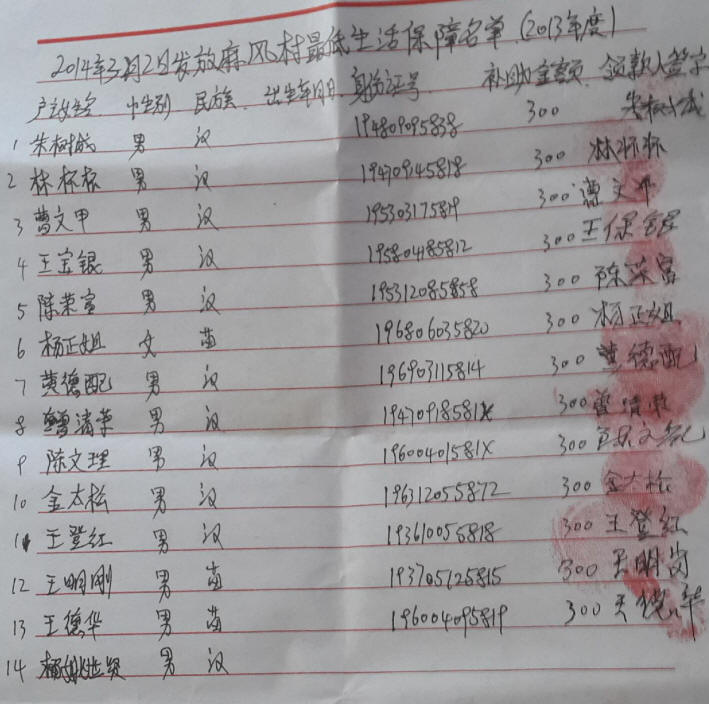 2014年3月2日发放麻风村最低生活保障名单(2013年度)
户主姓名 性别 民族 出生年月日 身份证号 补助金额 领款人签字
1 朱树成 男 汉 194809095838 300 朱树成
2 林怀标 男 汉 194709145818 300
3 曹文甲 男 汉 195303175819 300 曹文甲
4 王宝银 男 汉 195804185812 300 王保银
5 陈荣富 男 汉 195312085858 300 陈荣富
6 杨正姐 女 苗 196806035820 300 杨正姐
7 黄德配 男 汉 196903115814 300 黄德配
8 曹清荣 男 汉 19470918581X 300 曹清荣
9 陈文理 男 汉 19600401581X 300
10 金太松 男 汉 196312055872 300 金太松
11 王登红 男 汉 193610055818 300 王登红
12 王明刚 男 苗 193705125815 300 王明岗
13 王德华 男 苗 196004095819 300 王德华
14 男 汉